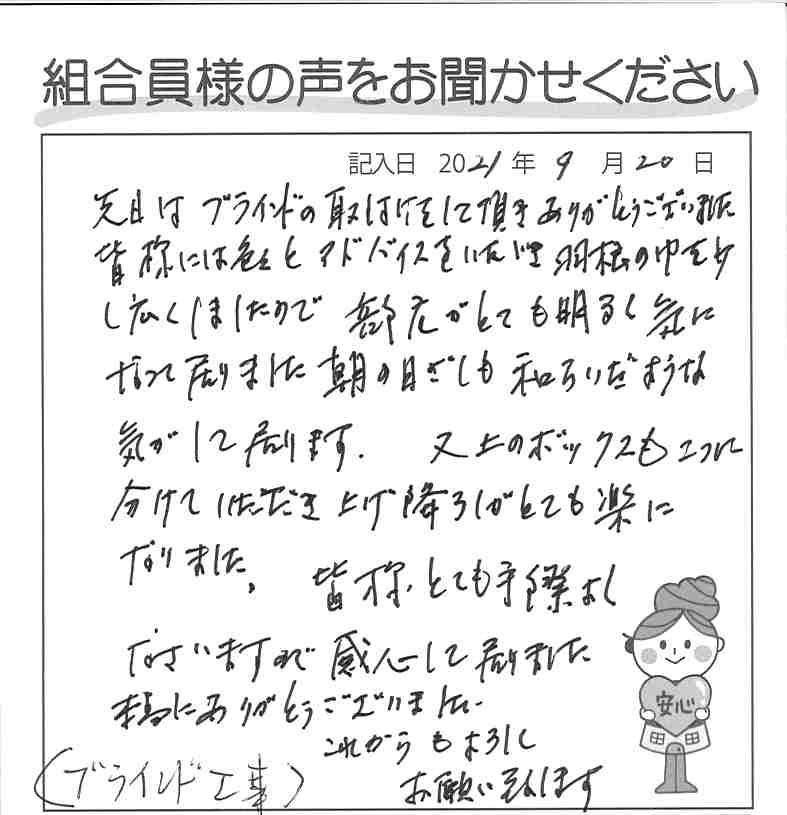 組合員様の声をお聞かせください
記入日 2021年 9月20日
先日は ブラインドの取付けをして頂き ありがとうございました
皆様には色々とアドバイスをいただき 羽根の巾を少
し広くしましたので 部屋がとても明るく 気に
なって居りました 朝の日ざしも 和らいだような
気がして居ります. 又上のボックスも二つに
分けていただき 上げ降ろしがとても楽に
なりました。 皆様、とても手際よく
なさいますので 感心して居りました
本当にありがとうございました。
これからもよろしく
お願い致します
安心
(ブラインド工事)